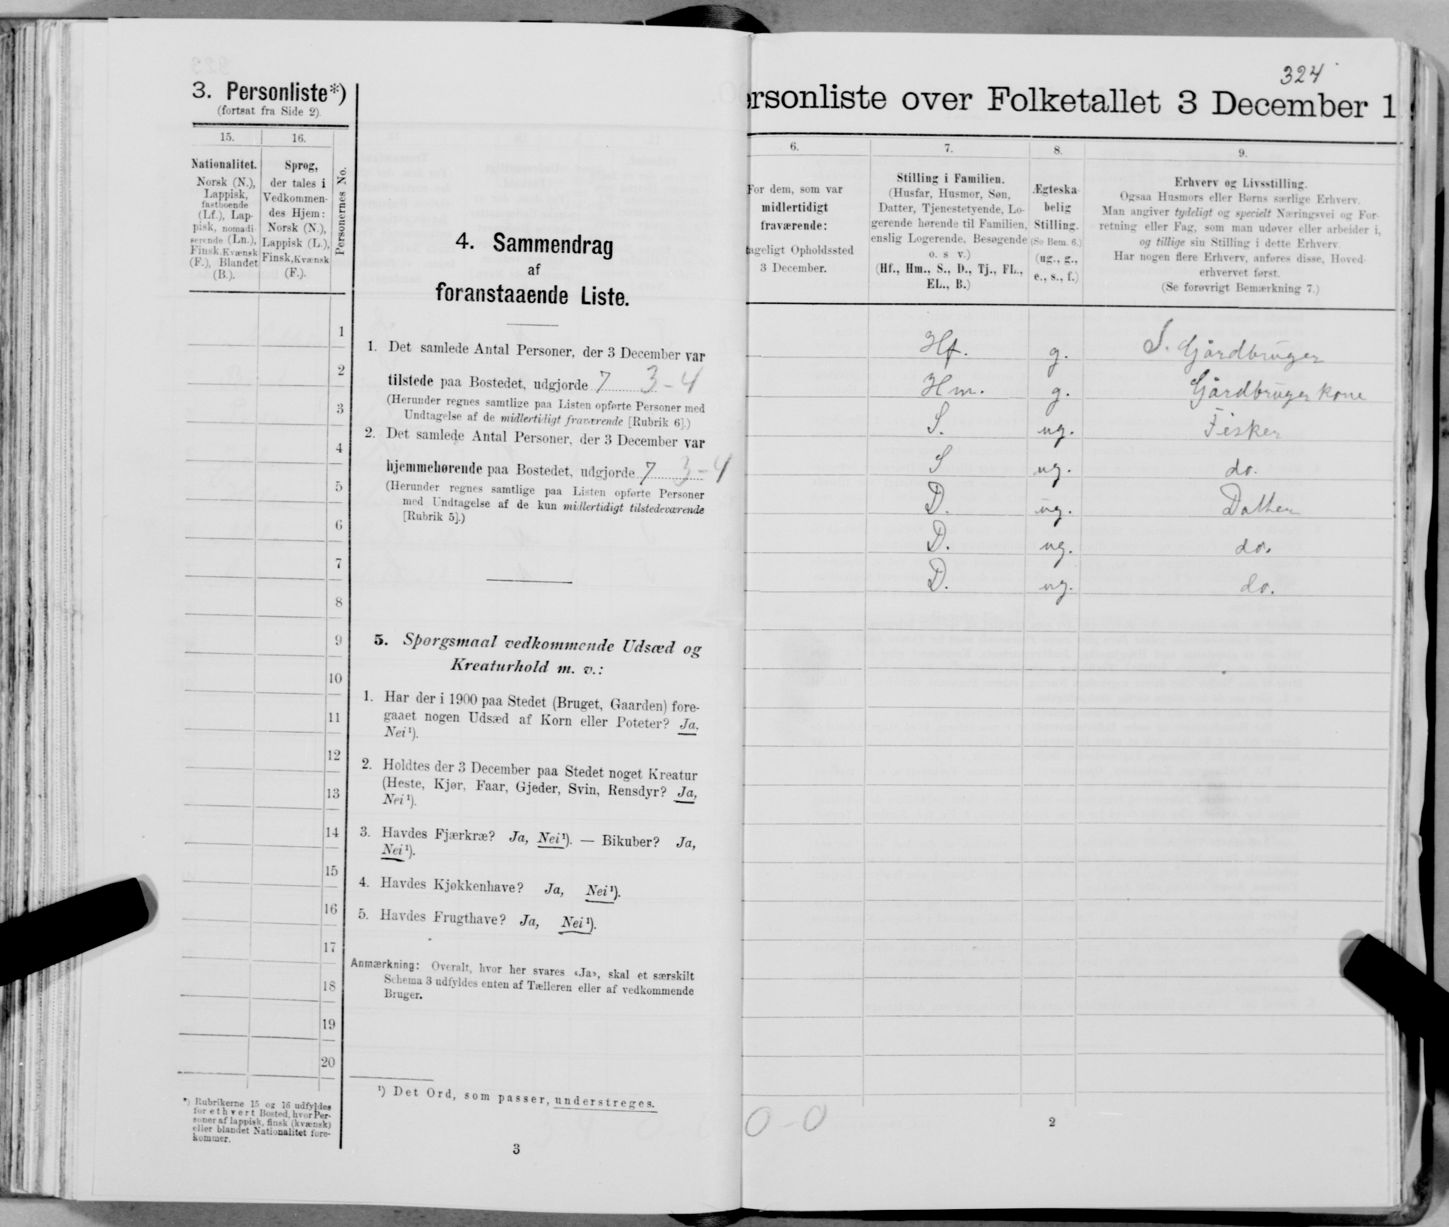 3. Personliste*)
(fortsat fra Side 2).
15.
16.
Nationalitet.
Norsk (N.),
Lappisk,
fastboende
(Lf.), Lap-
pisk, nomadi
serende (Ln.),
Finsk, Kvænsk
(F.), Blandet
(B.).
Sprog,
der tales i
Vedkommen-
des Hjem:
Norsk (N.),
Lappisk (L.),
Finsk, Kvænsk
(F.).
Personernes No.
1
2
3
4
5
6
7
8
9
10
11
12
13
14
15
16
17
18
19
20
*) Rubrikerne 15 og 16 udfyldes
for ethvert Bosted, hvor Per-
soner af lappisk, finsk (kvænsk)
eller blandet Nationalitet fore-
kommer.
4. Sammendrag
af
foranstaaende Liste.
1. Det samlede Antal Personer, der 3 December var
tilstede paa Bostedet, udgjorde 7 3-4
(Herunder regnes samtlige paa Listen opførte Personer med
Undtagelse af de midlertidigt fraværende [Rubrik 6].)
2. Det samlede Antal Personer, der 3 December var
hjemmehørende paa Bostedet, udgjorde 7 3-4
(Herunder regnes samtlige paa Listen opførte Personer
med Undtagelse af de kun midlertidigt tilstedeværende
[Rubrik 5].)
5. Spørgsmaal vedkommende Udsæd og
Kreaturhold m. v.:
1. Har der i 1900 paa Stedet (Bruget, Gaarden) fore-
gaaet nogen Udsæd af Korn eller Poteter? Ja,
Nei¹).
2. Holdtes der 3 December paa Stedet noget Kreatur
(Heste, Kjør, Faar, Gjeder, Svin, Rensdyr? Ja,
Nei¹).
3. Havdes Fjærkræ? Ja, Nei¹). — Bikuber? Ja,
Nei¹).
4. Havdes Kjøkkenhave? Ja, Nei¹).
5. Havdes Frugthave? Ja, Nei¹).
Anmærkning: Overalt, hvor her svares «Ja», skal et særskilt
Schema 3 udfyldes enten af Tælleren eller af vedkommende
Bruger.
¹) Det Ord, som passer, understreges.
3
324
rsonliste over Folketallet 3 December 1
6.
7.
8.
9.
For dem, som var
midlertidigt
fraværende:
ageligt Opholdssted
3 December.
Stilling i Familien.
(Husfar, Husmor, Søn,
Datter, Tjenestetyende, Lo-
gerende hørende til Familien,
enslig Logerende, Besøgende
o. s v.)
(Hf., Hm., S., D., Tj., FL.,
EL., B.)
Ægteska
belig
Stilling.
(Se Bem. 6.)
(ug., g.,
e., s., f.)
Erhverv og Livsstilling.
Ogsaa Husmors eller Børns særlige Erhverv.
Man angiver tydeligt og specielt Næringsvei og For-
retning eller Fag, som man udøver eller arbeider i,
og tillige sin Stilling i dette Erhverv.
Har nogen flere Erhverv, anføres disse, Hoved-
erhvervet først.
(Se forøvrigt Bemærkning 7.)
Hf. g. S. Gårdbruger
Hm. g. Gårdbruger kone
S. ug. Fisker
S ug. do.
D. ug. Datter
D. ug. do.
D. ug. do.
0-0
2